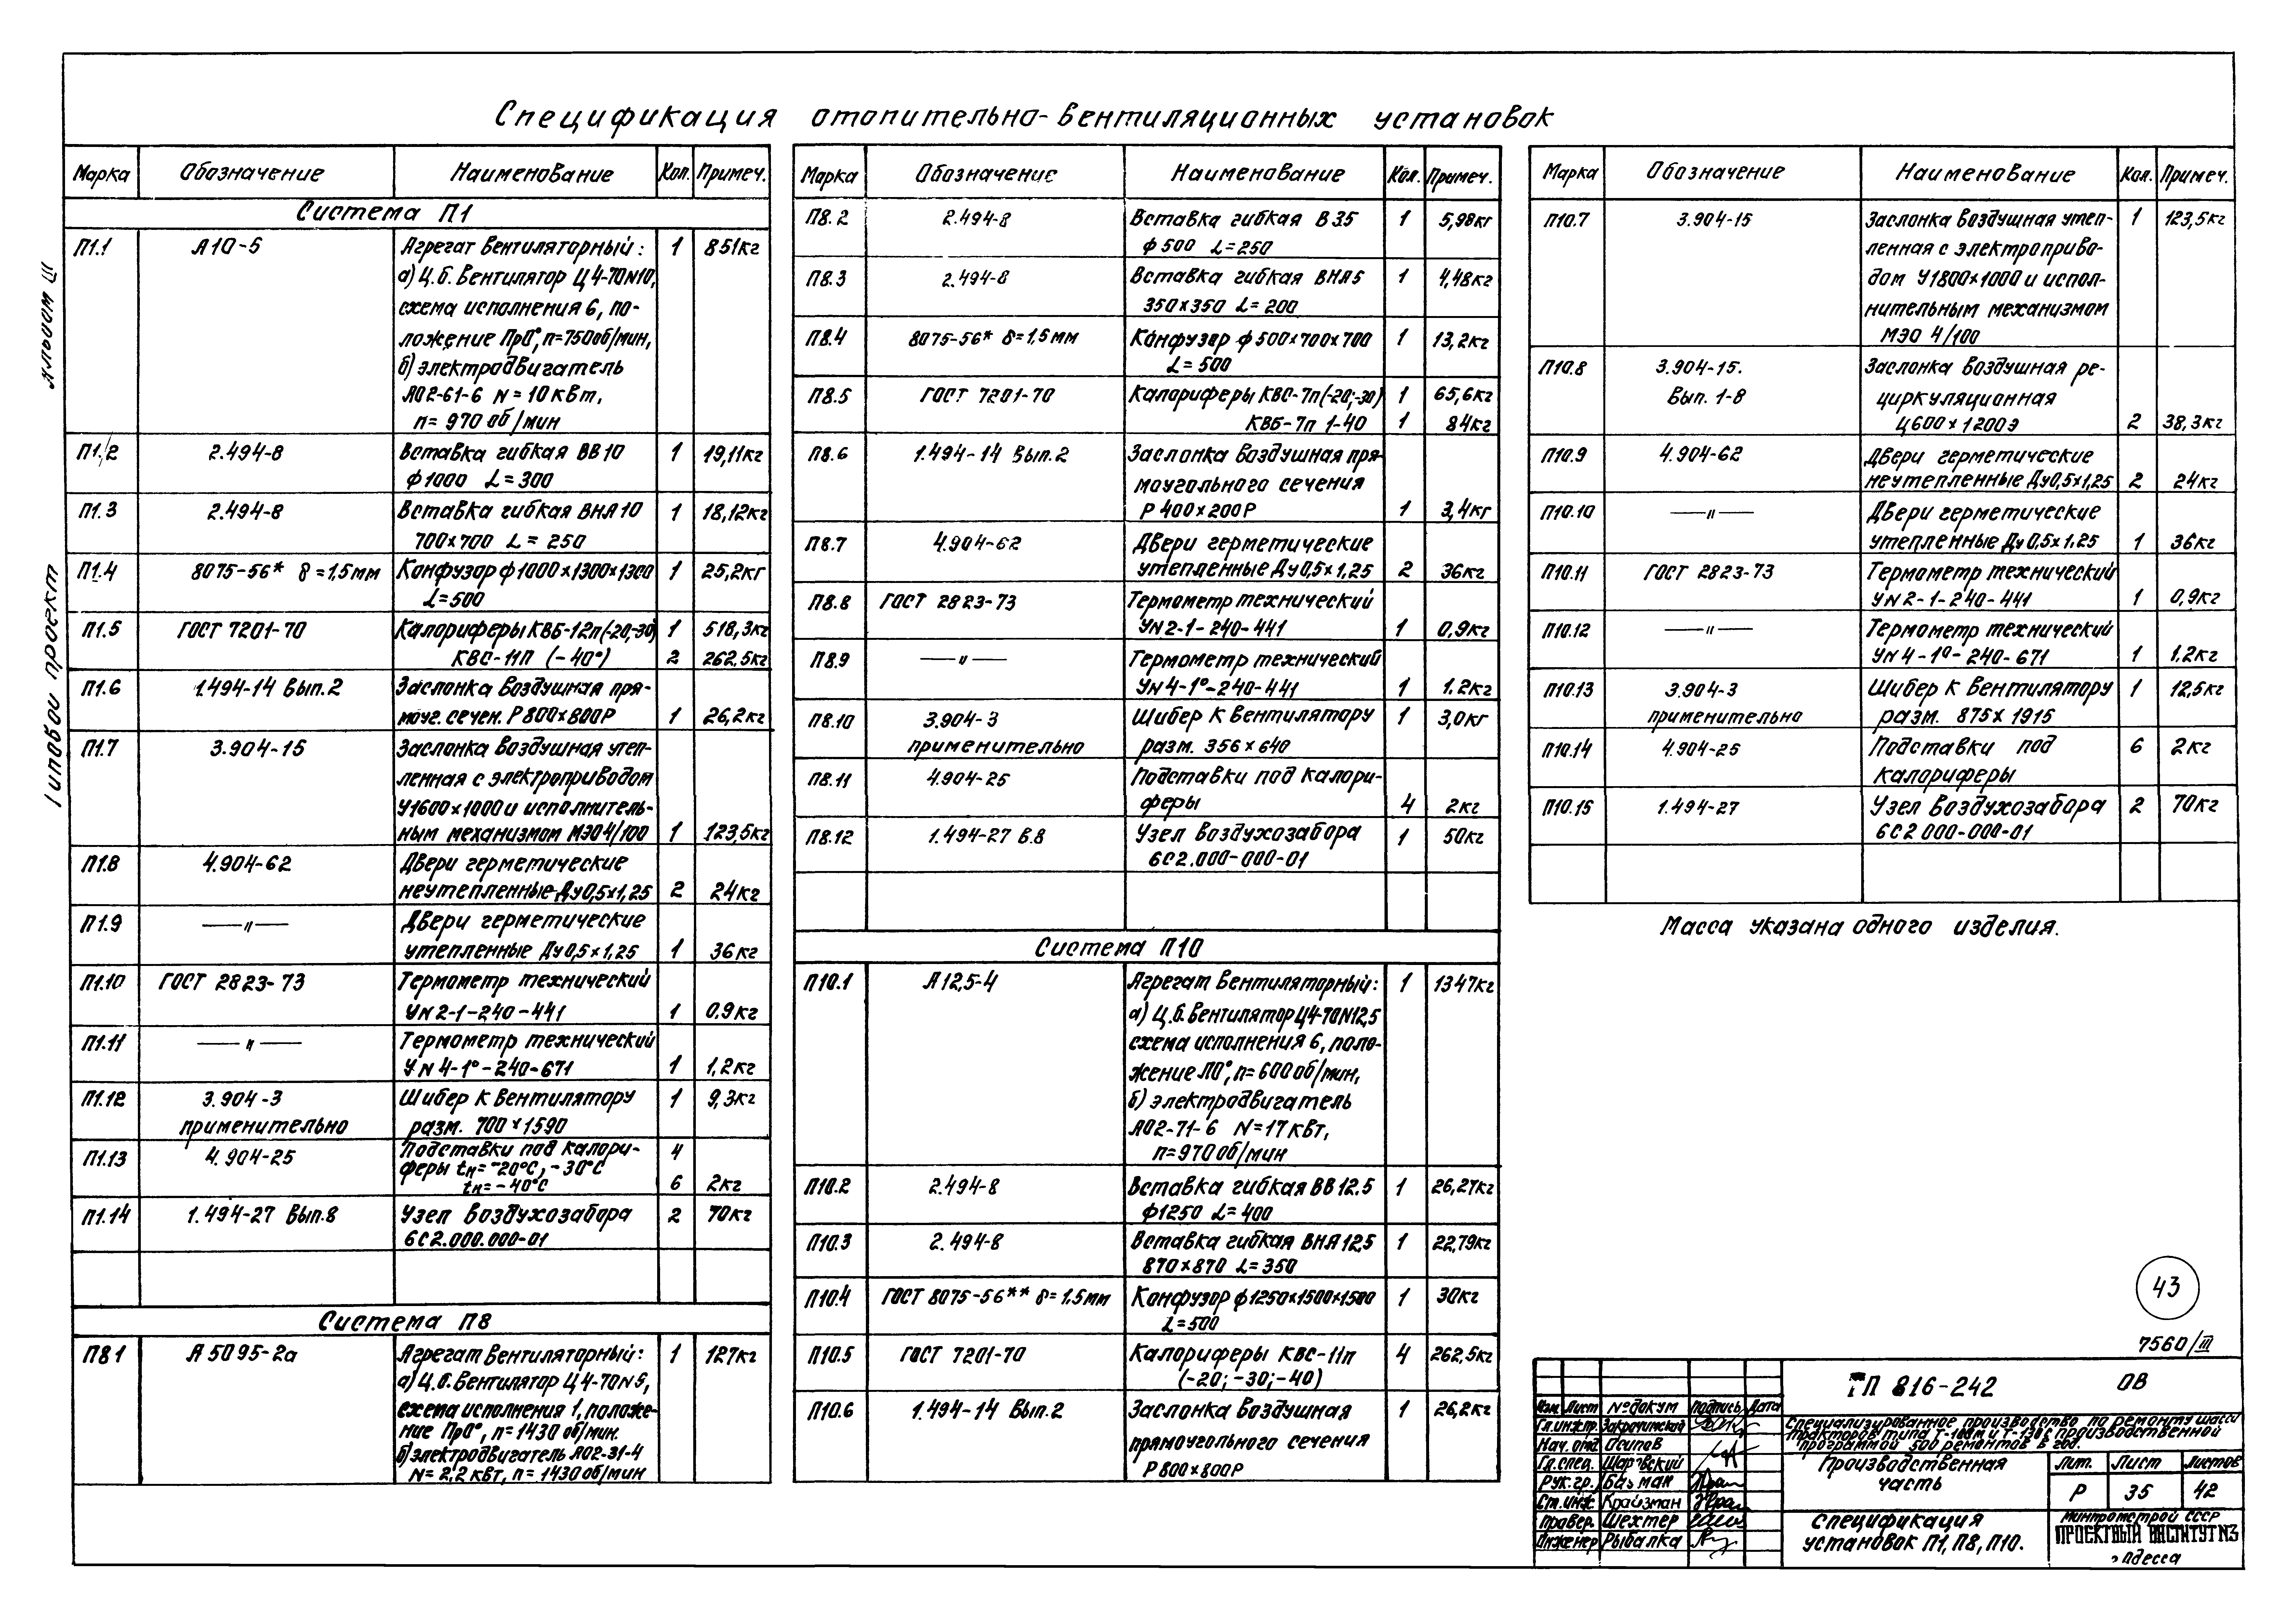 Спецификация отопительно-вентиляционных установок
Альбом III
Типовой проект
Марка Обозначение Наименование Кол. Примеч.
Система П1
П1.1 А10-5 Агрегат вентиляторный: 1 851кг
а) Ц.б. вентилятор Ц4-70N10,
схема исполнения 6, по-
ложение Пр0°, n=750об/мин,
б) электродвигатель
АО2-61-6 N=10кВт,
n=970 об/мин
П1.2 2.494-8 Вставка гибкая ВВ10 1 19,11кг
ф1000 L=300
П1.3 2.494-8 Вставка гибкая ВНА10 1 18,12кг
700х700 L=250
П1.4 8075-56* δ=1,5мм Конфузор ф1000х1300х1300 1 25,2кг
L=500
П1.5 ГОСТ 7201-70 Калориферы КВБ-12п(-20,-30) 1 518,3кг
КВС-11П (-40°) 2 262,5кг
П1.6 1.494-14 Вып.2 Заслонка воздушная пря-
моуг. сечен. Р800х800Р 1 26,2кг
П1.7 3.904-15 Заслонка воздушная утеп-
ленная с электроприводом
У1600х1000 и исполнитель-
ным механизмом МЭО4/100 1 123,5кг
П1.8 4.904-62 Двери герметические
неутепленные Ду0,5х1,25 2 24кг
П1.9 —"— Двери герметические
утепленные Ду0,5х1,25 1 36кг
П1.10 ГОСТ 2823-73 Термометр технический
УN2-1-240-441 1 0,9кг
П1.11 —"— Термометр технический
УN4-1°-240-671 1 1,2кг
П1.12 3.904-3 Шибер к вентилятору 1 9,3кг
применительно разм. 700х1590
П1.13 4.904-25 Подставки под калори- 4
феры tн=-20°С,-30°С
tн=-40°С 6 2кг
П1.14 1.494-27 Вып.8 Узел воздухозабора 2 70кг
6С2.000.000-01
Система П8
П8.1 А5095-2а Агрегат вентиляторный: 1 127кг
а) Ц.б. вентилятор Ц4-70N5,
схема исполнения 1, положе-
ние Пр0°, n=1430 об/мин.
б) электродвигатель АО2-31-4
N=2,2 кВт, n=1430об/мин
Марка Обозначение Наименование Кол. Примеч.
П8.2 2.494-8 Вставка гибкая В35 1 5,98кг
ф500 L=250
П8.3 2.494-8 Вставка гибкая ВНА5 1 4,48кг
350х350 L=200
П8.4 8075-56* δ=1,5мм Конфузор ф500х700х700 1 13,2кг
L=500
П8.5 ГОСТ 7201-70 Калориферы КВС-7п(-20;-30) 1 65,6кг
КВБ-7п 1-40 1 84кг
П8.6 1.494-14 Вып.2 Заслонка воздушная пря-
моугольного сечения
Р400х200Р 1 3,4кг
П8.7 4.904-62 Двери герметические
утепленные Ду0,5х1,25 2 36кг
П8.8 ГОСТ 2823-73 Термометр технический
УN2-1-240-441 1 0,9кг
П8.9 —"— Термометр технический
УN4-1°-240-441 1 1.2кг
П8.10 3.904-3 Шибер к вентилятору 1 3,0кг
применительно разм. 356х640
П8.11 4.904-25 Подставки под калори-
феры 4 2кг
П8.12 1.494-27 В.8 Узел воздухозабора 1 50кг
6С2.000-000-01
Система П10
П10.1 А12,5-4 Агрегат вентиляторный: 1 1347кг
а) Ц.б. вентилятор Ц4-70N12,5
схема исполнения 6, поло-
жение Л0°, n=600об/мин,
б) электродвигатель
АО2-71-6 N=17кВт,
n=970об/мин
П10.2 2.494-8 Вставка гибкая ВВ12.5 1 26,27кг
ф1250 L=400
П10.3 2.494-8 Вставка гибкая ВНА12,5 1 22,79кг
870х870 L=350
П10.4 ГОСТ 8075-56** δ=1,5мм Конфузор ф1250х1500х1500 1 30кг
L=500
П10.5 ГОСТ 7201-70 Калориферы КВС-11п 4 262,5кг
(-20;-30;-40)
П10.6 1.494-14 Вып.2 Заслонка воздушная 1 26,2кг
прямоугольного сечения
Р800х800Р
Марка Обозначение Наименование Кол. Примеч.
П10.7 3.904-15 Заслонка воздушная утеп- 1 123,5кг
ленная с электроприво-
дом У1800х1000 и испол-
нительным механизмом
МЭО 4/100
П10.8 3.904-15. Заслонка воздушная ре-
Вып. 1-8 циркуляционная
Ц600х1200Э 2 38,3кг
П10.9 4.904-62 Двери герметические
неутепленные Ду0,5х1,25 2 24кг
П10.10 —"— Двери герметические
утепленные Ду0,5х1.25 1 36кг
П10.11 ГОСТ 2823-73 Термометр технический
УN2-1-240-441 1 0,9кг
П10.12 —"— Термометр технический
УN4-1°-240-671 1 1.2кг
П10.13 3.904-3 Шибер к вентилятору 1 12,5кг
применительно разм. 875х1915
П10.14 4.904-25 Подставки под 6 2кг
калориферы
П10.15 1.494-27 Узел воздухозабора 2 70кг
6С2.000-000-01
Масса указана одного изделия.
43
7560/III
ТП 816-242 ОВ
Изм. Лист №докум Подпись Дата
Гл.инж.пр. Закрочимский
Нач.отд Осипов
Гл.спец. Шаровский
Рук.гр. Басман
Ст.инж. Крайзман
Провер. Шехтер
Инженер Рыбалка
Специализированное производство по ремонту шасси
тракторов типа Т-100м и Т-130 с производственной
программой 500 ремонтов в год.
Производственная
часть
Лит. Лист Листов
Р 35 42
Спецификация
установок П1, П8, П10.
Минпромстрой СССР
ПРОЕКТНЫЙ ИНСТИТУТ №3
г. Одесса